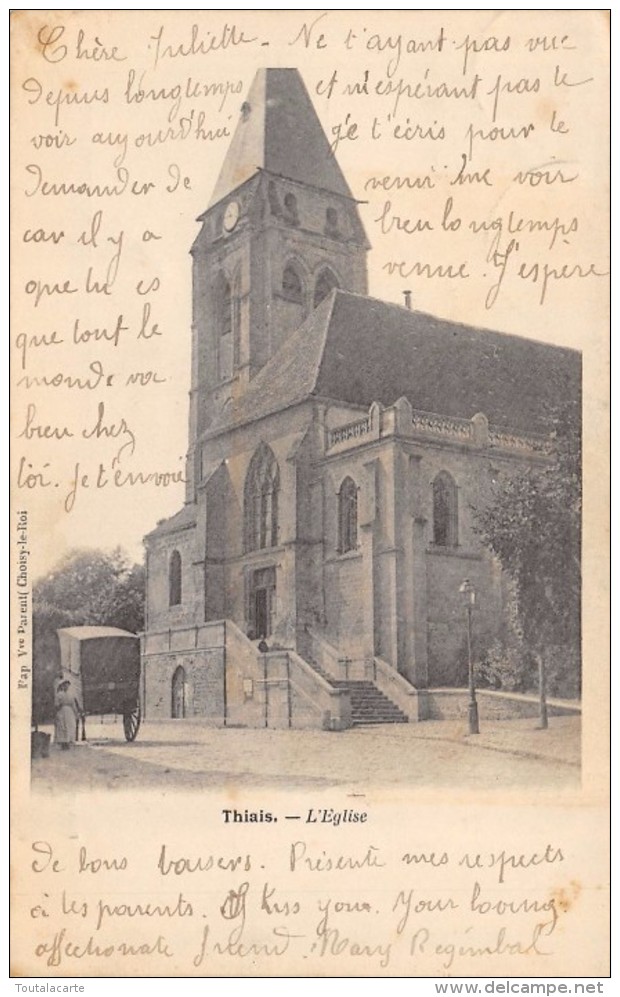 Chère Juliette - Ne t'ayant pas vue
depuis longtemps et m'espérant pas te
voir aujourd'hui je t'écris pour te
demander de venir me voir
car il y a bien longtemps
que tu es venue. J'espère
que tout le
monde va
bien chez
toi. Je t'envoie
Pap Vve Parent ( Choisy-le-Roi
Thiais. — L'Eglise
de bons baisers. Présente mes respects
à tes parents. I kiss you. Your loving
affectionate friend. Mary Regimbal
Toutalacarte
www.delcampe.net